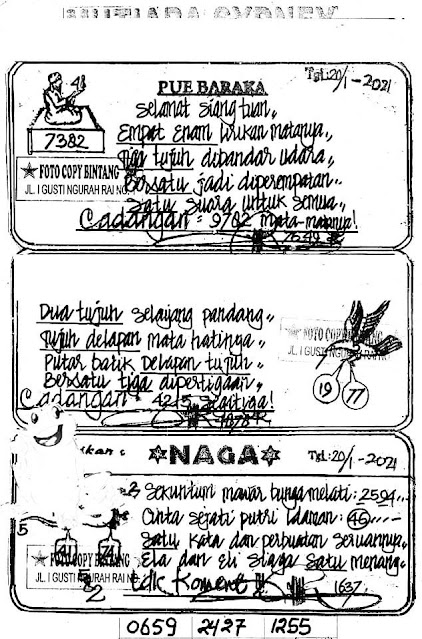 MUTIARA SYDNEY
Tgl: 20/1 - 2021
PUE BARAKA
48
7382
Selamat siang tuan,,
Empat Enam lirikan matanya,,
Tiga tujuh dibandar udara,,
Bersatu jadi diperempatan..
Satu suara untuk semua,,
Cadangan = 9702 mata-matanya!
7549
FOTO COPY BINTANG
JL. I GUSTI NGURAH RAI NO. 1
Dua tujuh selayang pandang,,
Tujuh delapan mata hatinya,,
Putar batik Delapan tujuh,,
Bersatu tiga dipertigaan,,
Cadangan = 4215 segitiga!
1078
FOTO COPY
JL. I GUSTI NGURAH
19 77
NAGA
Tgl: 20/1 - 2021
Sekuntum mawar bunga melati: 2594...
Cinta sejati putri idaman: 46....
Satu kata dan perbuatan seruannya,,
Ela dan Eli siaga satu menang..
Tdk Koment
1637.
5
41 74
2
FOTO COPY BINTANG
JL. I GUSTI NGURAH RAI NO.
0659 2427 1255